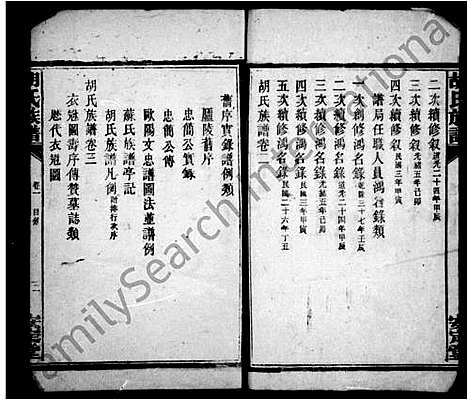 胡氏族譜
二次續修叙道光二十四年甲辰
三次續修叙光緒五年己卯
四次續修叙民國三年甲寅
譜局任職人員鴻名錄類
次創修鴻名錄乾隆三十七年壬辰
二次續修鴻名錄道光二十四年甲辰
三次續修鴻名錄光緒五年己卯
四次續修鴻名錄民國三年甲寅
五次續修鴻名錄民國二十六年丁丑
胡氏族譜卷二
舊序實錄譜例類
廬陵舊序
忠簡公實錄
忠簡公傳
歐陽文忠譜圖法並譜例
蘇氏族譜亭記
胡氏族譜凡例附排行次序
胡氏族譜卷三
衣冠圖壽序傳贊墓誌類
歷代衣冠圖
胡氏族譜
卷一 目錄
FamilySearch International